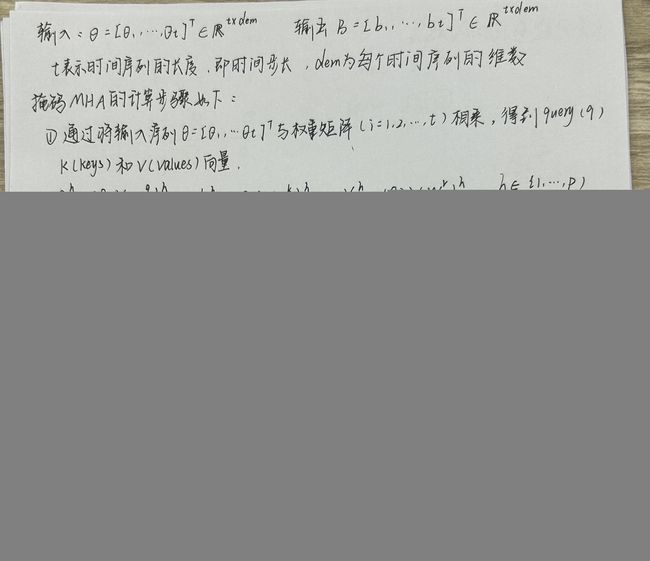 输入：θ=[θ₁,…,θt]ᵀ∈ℝ^{t×dem} 输出 B=[b₁,…,bt]ᵀ∈ℝ^{t×dem}
t表示时间序列的长度，即时间步长，dem为每个时间序列的维数
掩码MHA的计算步骤如下：
① 通过将输入序列θ=[θ₁,…θt]ᵀ与权重矩阵(i=1,2,…,t)相乘，得到query(q)
K(keys)和V(values)向量.
h∈{1,…,p}